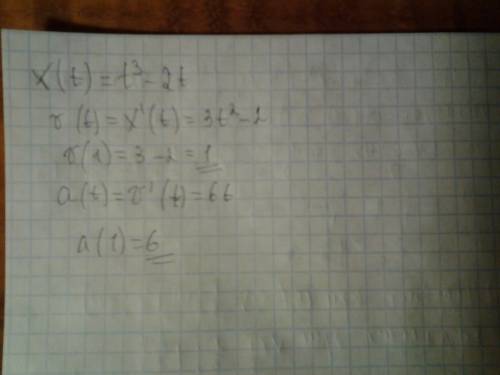 x(t)=t³-2t
v(t)=x'(t)=3t²-2
v(1)=3-2=1
a(t)=v'(t)=6t
a(1)=6